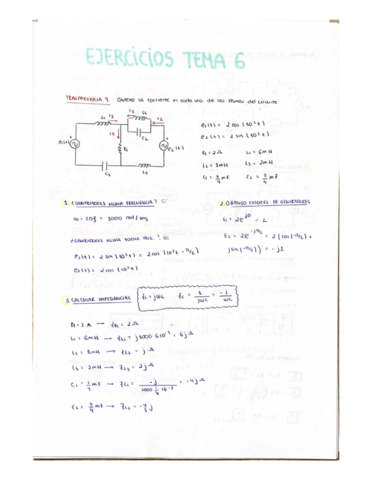 EJERCICIOS TEMA 6
TRANSPARENCIA 9 Obtener la corriente en cada una de las ramas del circuito
L1 i3 L2
i1 i2
e1(t) R1 C2 e2(t)
C1 L3
e1(t) = 2 cos (10³t)
e2(t) = 2 sin (10³t)
R1 = 2Ω L1 = 6mH
L2 = 1mH L3 = 2mH
C1 = 1/4 mF C2 = 3/4 mF
1. ¿GENERADORES MISMA FRECUENCIA? SI
ω = 1000 rad/seg
¿GENERADORES MISMA FORMA? NO
e2(t) = 2 sin (10³t) = 2 cos (10³t - π/2)
e1(t) = 2 cos (10³t)
2. OBTENGO FASORES DE GENERADORES
E1 = 2e^j0 = 2
E2 = 2e^-jπ/2 = 2 (cos(-π/2) +
j sin(-π/2)) = -j2
3. CALCULAR IMPEDANCIAS ZL = jωL ZC = 1/jωC = -j/ωC
R1 = 2 Ω → ZR1 = 2 Ω
L1 = 6mH → ZL1 = j1000 6·10⁻³ = 6j Ω
L2 = 1mH → ZL2 = j Ω
L3 = 2mH → ZL3 = 2j Ω
C1 = 1/4 mF → ZC1 = -j/1000 1/4 10⁻³ = -4j Ω
C2 = 3/4 mF → ZC2 = -4/3 j